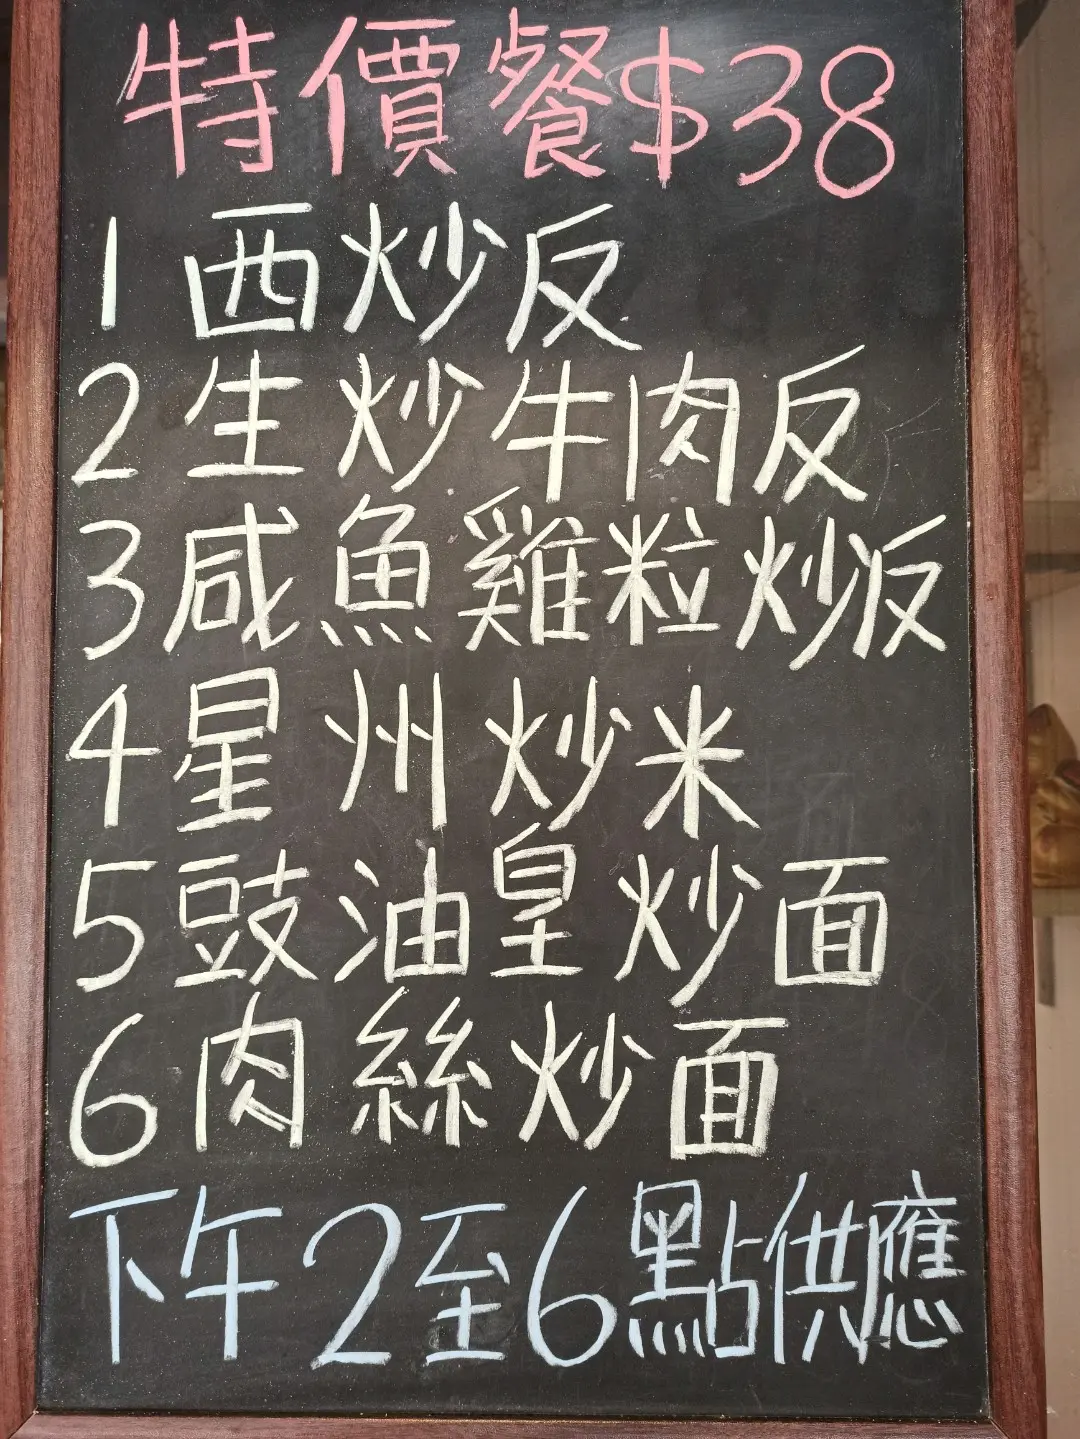 特價餐$38
1 西炒反
2 生炒牛肉反
3 咸魚雞粒炒返
4 星州炒米
5 豉油皇炒面
6 肉絲炒面
下午2至6點供應